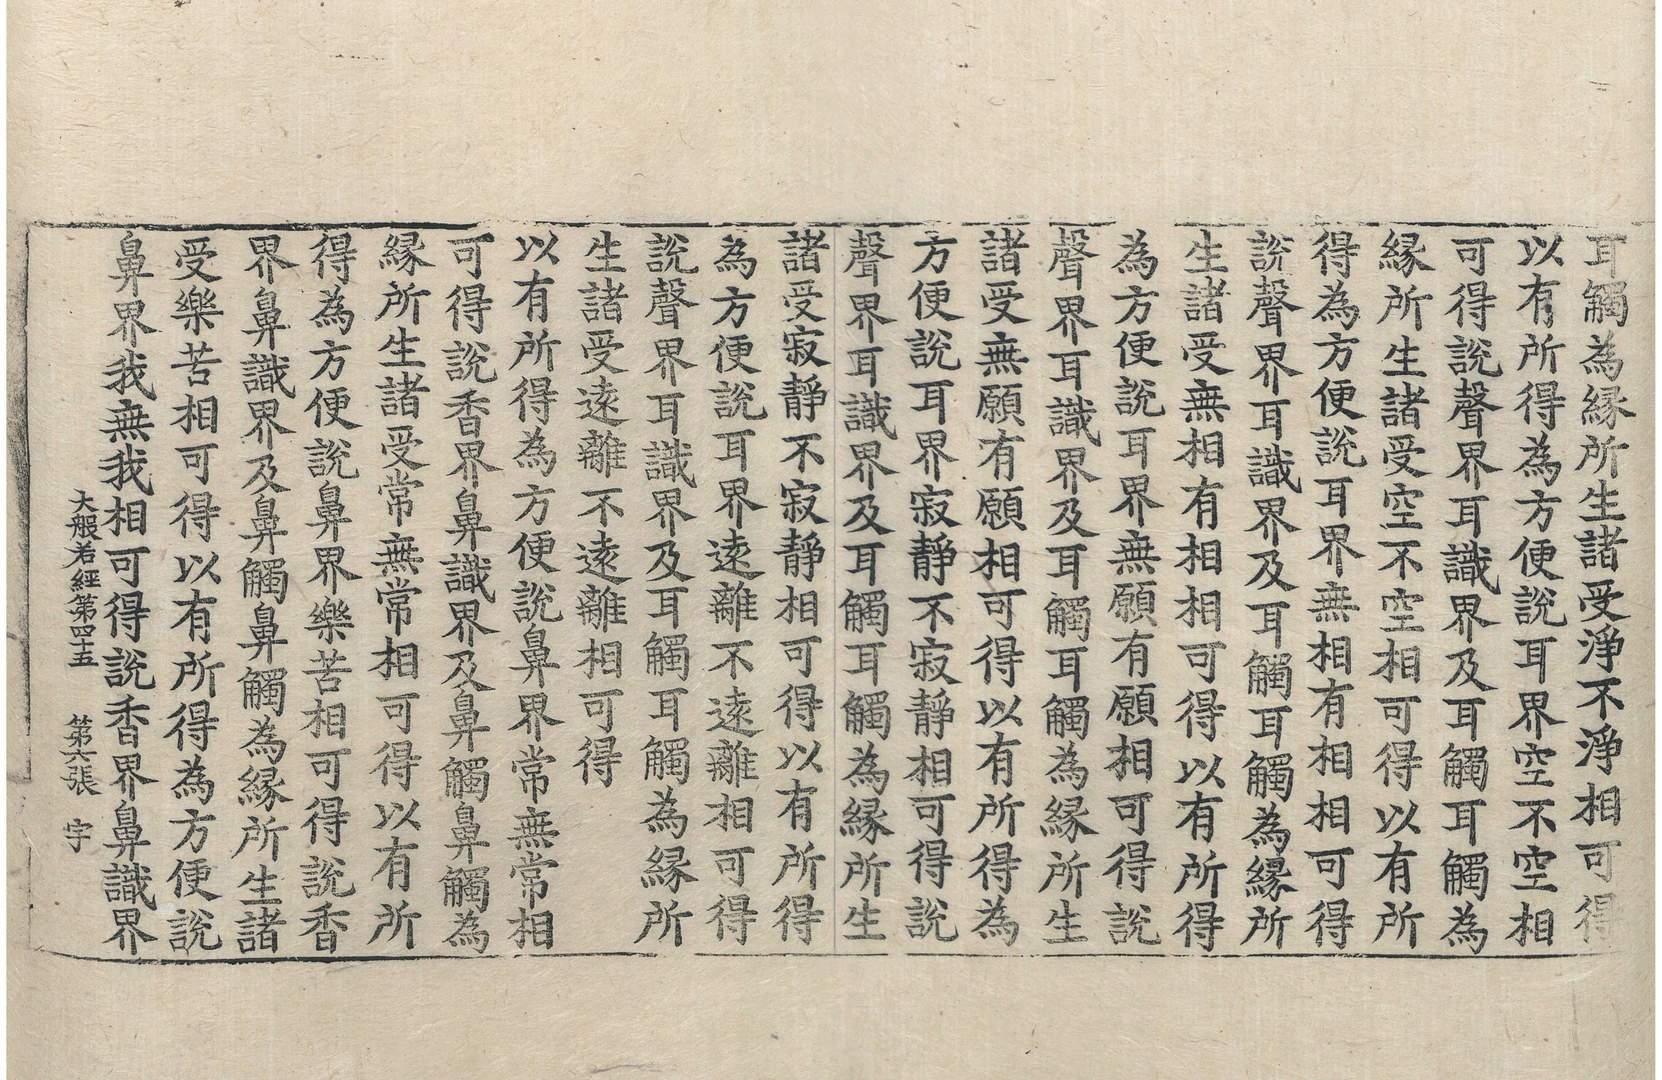 耳觸為緣所生諸受淨不淨相可得
以有所得為方便說耳界空不空相
可得說聲界耳識界及耳觸耳觸為
緣所生諸受空不空相可得以有所
得為方便說耳界無相有相相可得
說聲界耳識界及耳觸耳觸為緣所
生諸受無相有相相可得以有所得
為方便說耳界無願有願相可得說
聲界耳識界及耳觸耳觸為緣所生
諸受無願有願相可得以有所得為
方便說耳界寂靜不寂靜相可得說
聲界耳識界及耳觸耳觸為緣所生
諸受寂靜不寂靜相可得以有所得
為方便說耳界遠離不遠離相可得
說聲界耳識界及耳觸耳觸為緣所
生諸受遠離不遠離相可得
以有所得為方便說鼻界常無常相
可得說香界鼻識界及鼻觸鼻觸為
緣所生諸受常無常相可得以有所
得為方便說鼻界樂苦相可得說香
界鼻識界及鼻觸鼻觸為緣所生諸
受樂苦相可得以有所得為方便說
鼻界我無我相可得說香界鼻識界
大般若經第四十五 第六張 字